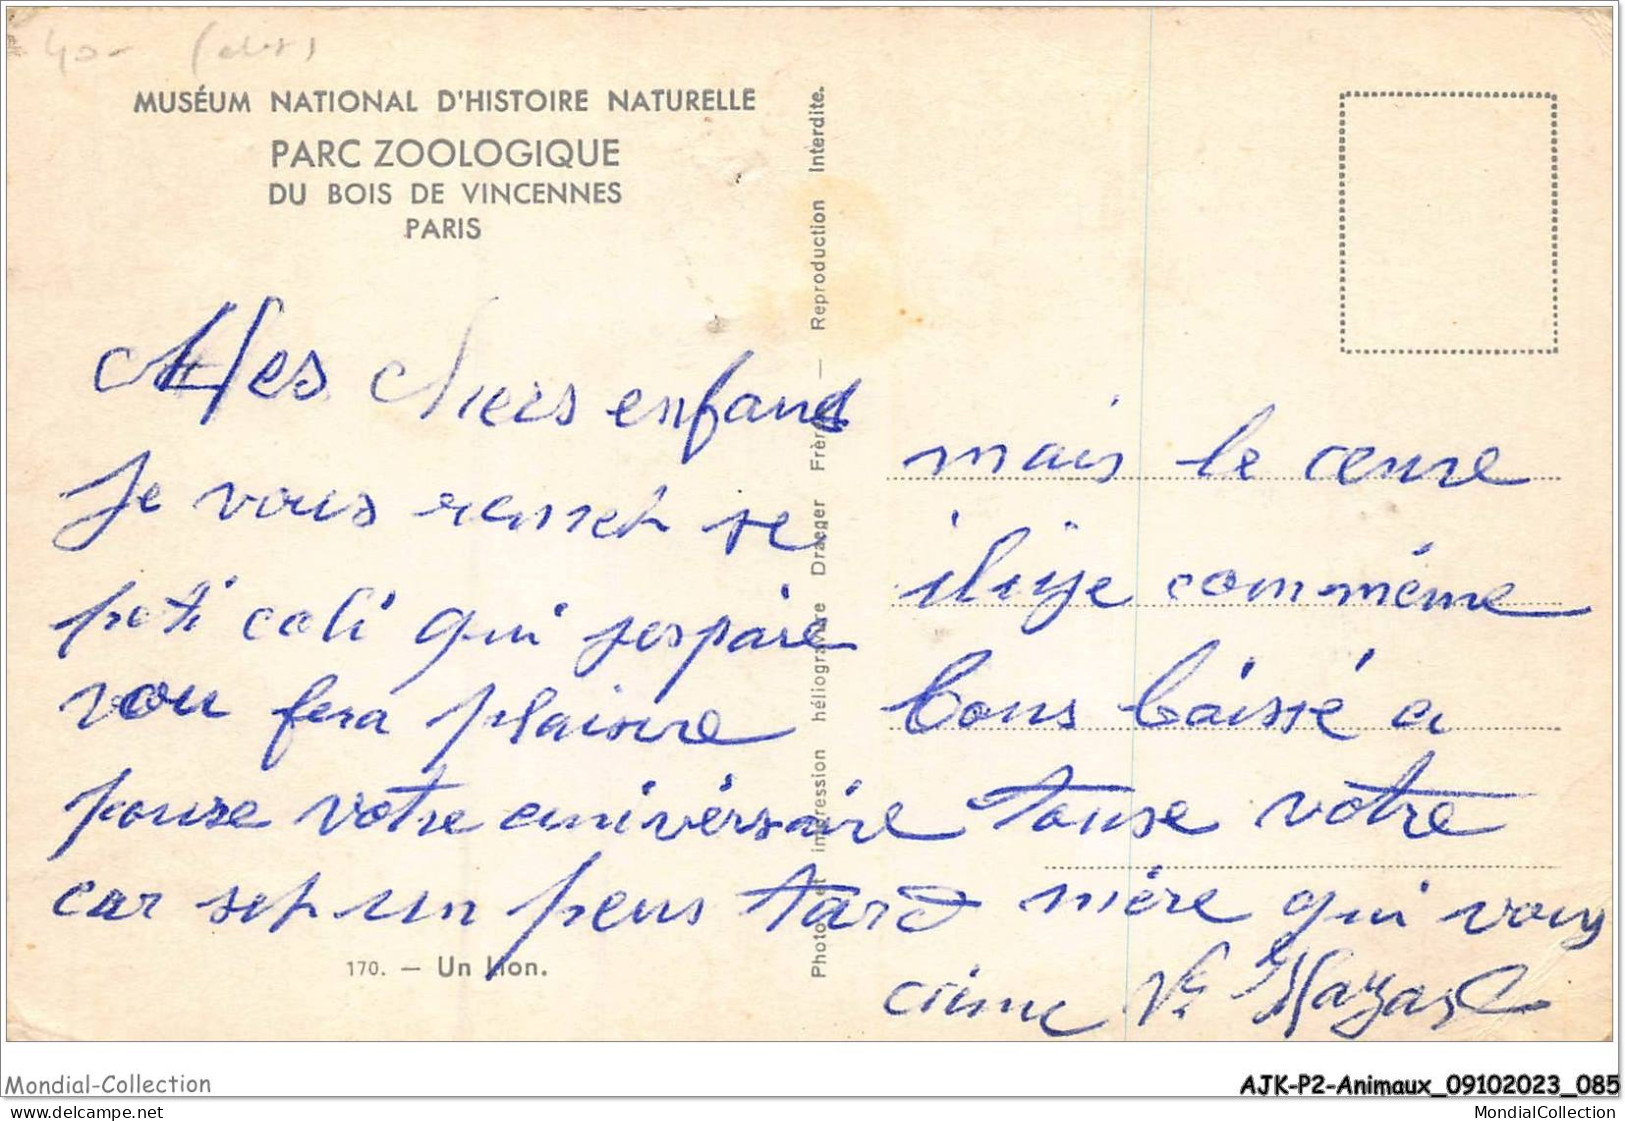 40-
MUSÉUM NATIONAL D'HISTOIRE NATURELLE
PARC ZOOLOGIQUE
DU BOIS DE VINCENNES
PARIS
Mes chers enfant
Je vous remet se
peti coli qui jespaire
vou fera plaisire
poure votre anivérsaire
car set un peus tard
170. — Un Lion.
Photo et impression héliogravure Draeger Frères — Reproduction Interdite.
mais le ceure
iliye commême
bons baissé a
touse votre
mère qui vous
cième Vve
Mondial-Collection
AJK-P2-Animaux_09102023_085
www.delcampe.net
MondialCollection